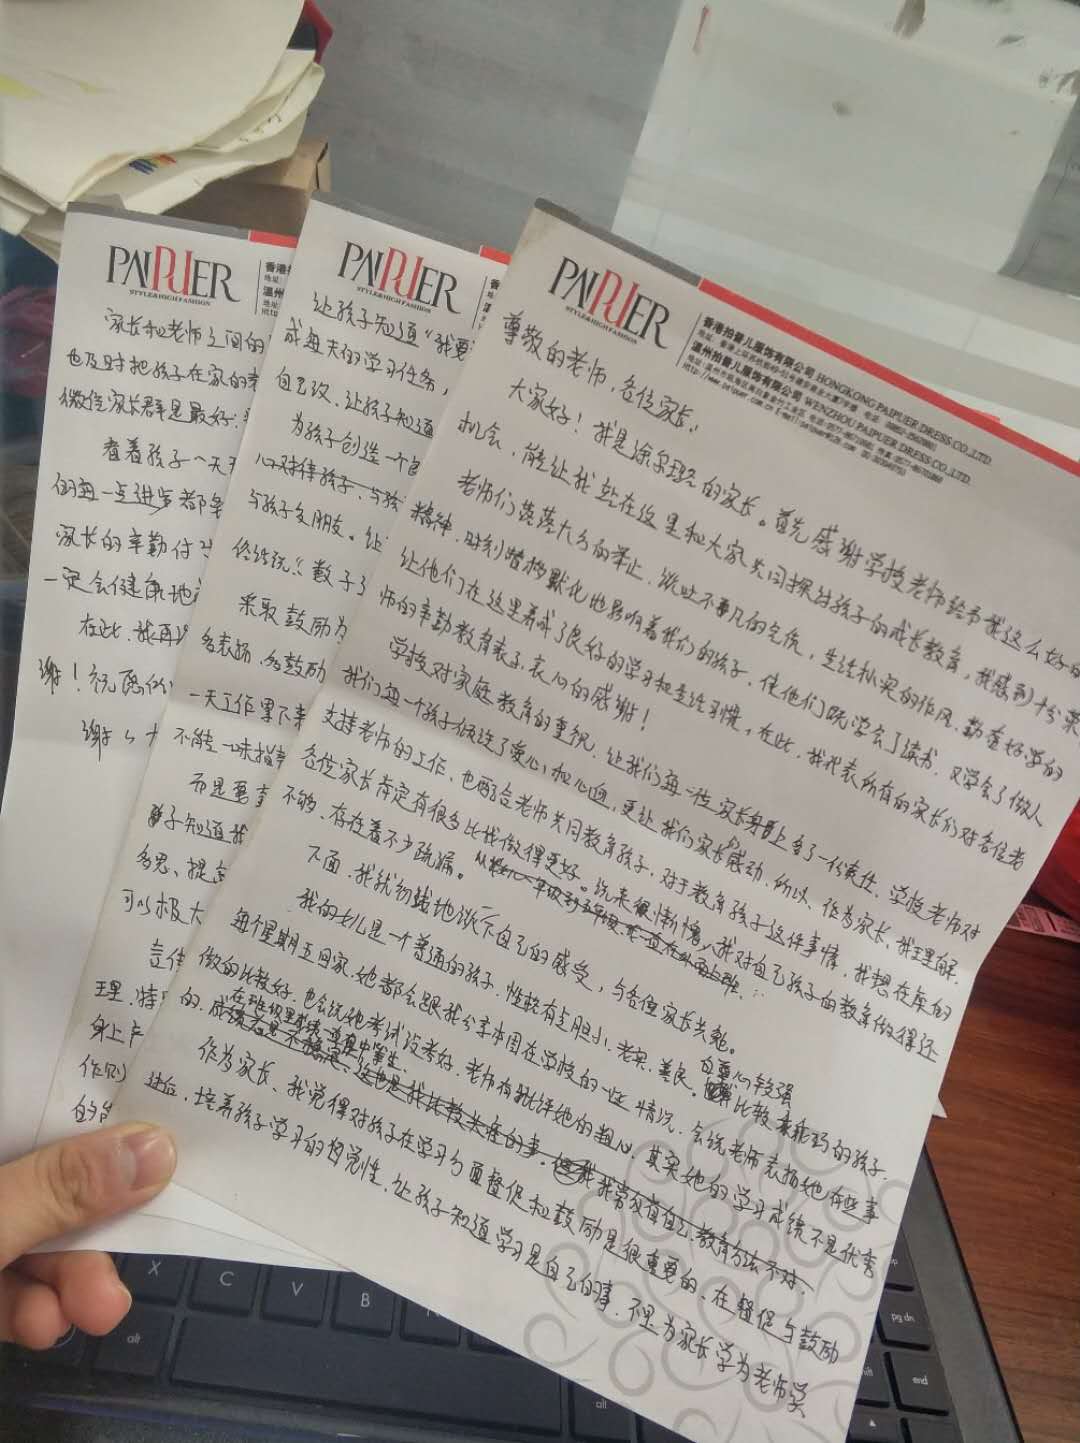 PAIPUER
STYLE&HIGH FASHION
家长和老师之间的
也及时把孩子在家的
微信家长群是最好
看着孩子一天天
的每一点进步都
家长的辛勤付
一定会健康地
在此，我再
谢！祝愿
谢谢大
PAIPUER
STYLE&HIGH FASHION
让孩子知道“我要
成每天的学习任务，
自己改、让孩子知道
为孩子创造一个
心对待孩子、与孩
与孩子交朋友。让
俗话说：“数子
采取鼓励为
多表扬，多鼓励
一天工作累下来
不能一味指责
而是要
孩子知道我
多思、提
可以极大
言传
理。特
身上
作则
的
PAIPUER
STYLE&HIGH FASHION
香港拍普儿服饰有限公司 HONGKONG PAIPUER DRESS CO.,LTD.
温州拍普儿服饰有限公司 WENZHOU PAIPUER DRESS CO.,LTD.
尊敬的老师，各位家长：
大家好！我是 的家长。首先感谢学校老师给予我这么好的
机会，能让我站在这里和大家共同探讨孩子的成长教育，我感到十分荣
老师们落落大方的举止，谈吐不凡的气质，生活朴实的作风，勤奋好学的
精神，时刻潜移默化地影响着我们的孩子，使他们既学会了读书，又学会了做人
让他们在这里养成了良好的学习和生活习惯。在此，我代表所有的家长们对各位老
师的辛勤教育表示衷心的感谢！
学校对家庭教育的重视，让我们每一位家长身上多了一份责任。学校老师对
我们每一个孩子倾注了爱心和心血，更让我们家长感动，所以，作为家长，我理解、
支持老师的工作，也配合老师共同教育孩子，对于教育孩子这件事情，我想在座的
各位家长肯定有很多比我做得更好。说来很惭愧，我对自己孩子的教育做得还
不够，存在着不少疏漏。从 一年级到五年级 一直在外面上班，
下面，我就粗浅地谈下自己的感受，与各位家长共勉。
我的女儿是一个普通的孩子，性格有点胆小、老实、善良。自尊心较强
比较乖巧的孩子，
每个星期五回家，她都会跟我分享本周在学校的一些情况，会说老师表扬她有些事
做的比较好，也会说她考试没考好，老师有批评她的粗心，其实她的学习成绩不是优秀
的，在班级里 中等生。
成绩 不稳定，这也是我比较头疼的事。 我常反省自己教育方法不对，
作为家长、我觉得对孩子在学习方面督促和鼓励是很重要的、在督促与鼓励
过后，培养孩子学习的自觉性，让孩子知道学习是自己的事，不是为家长学为老师学